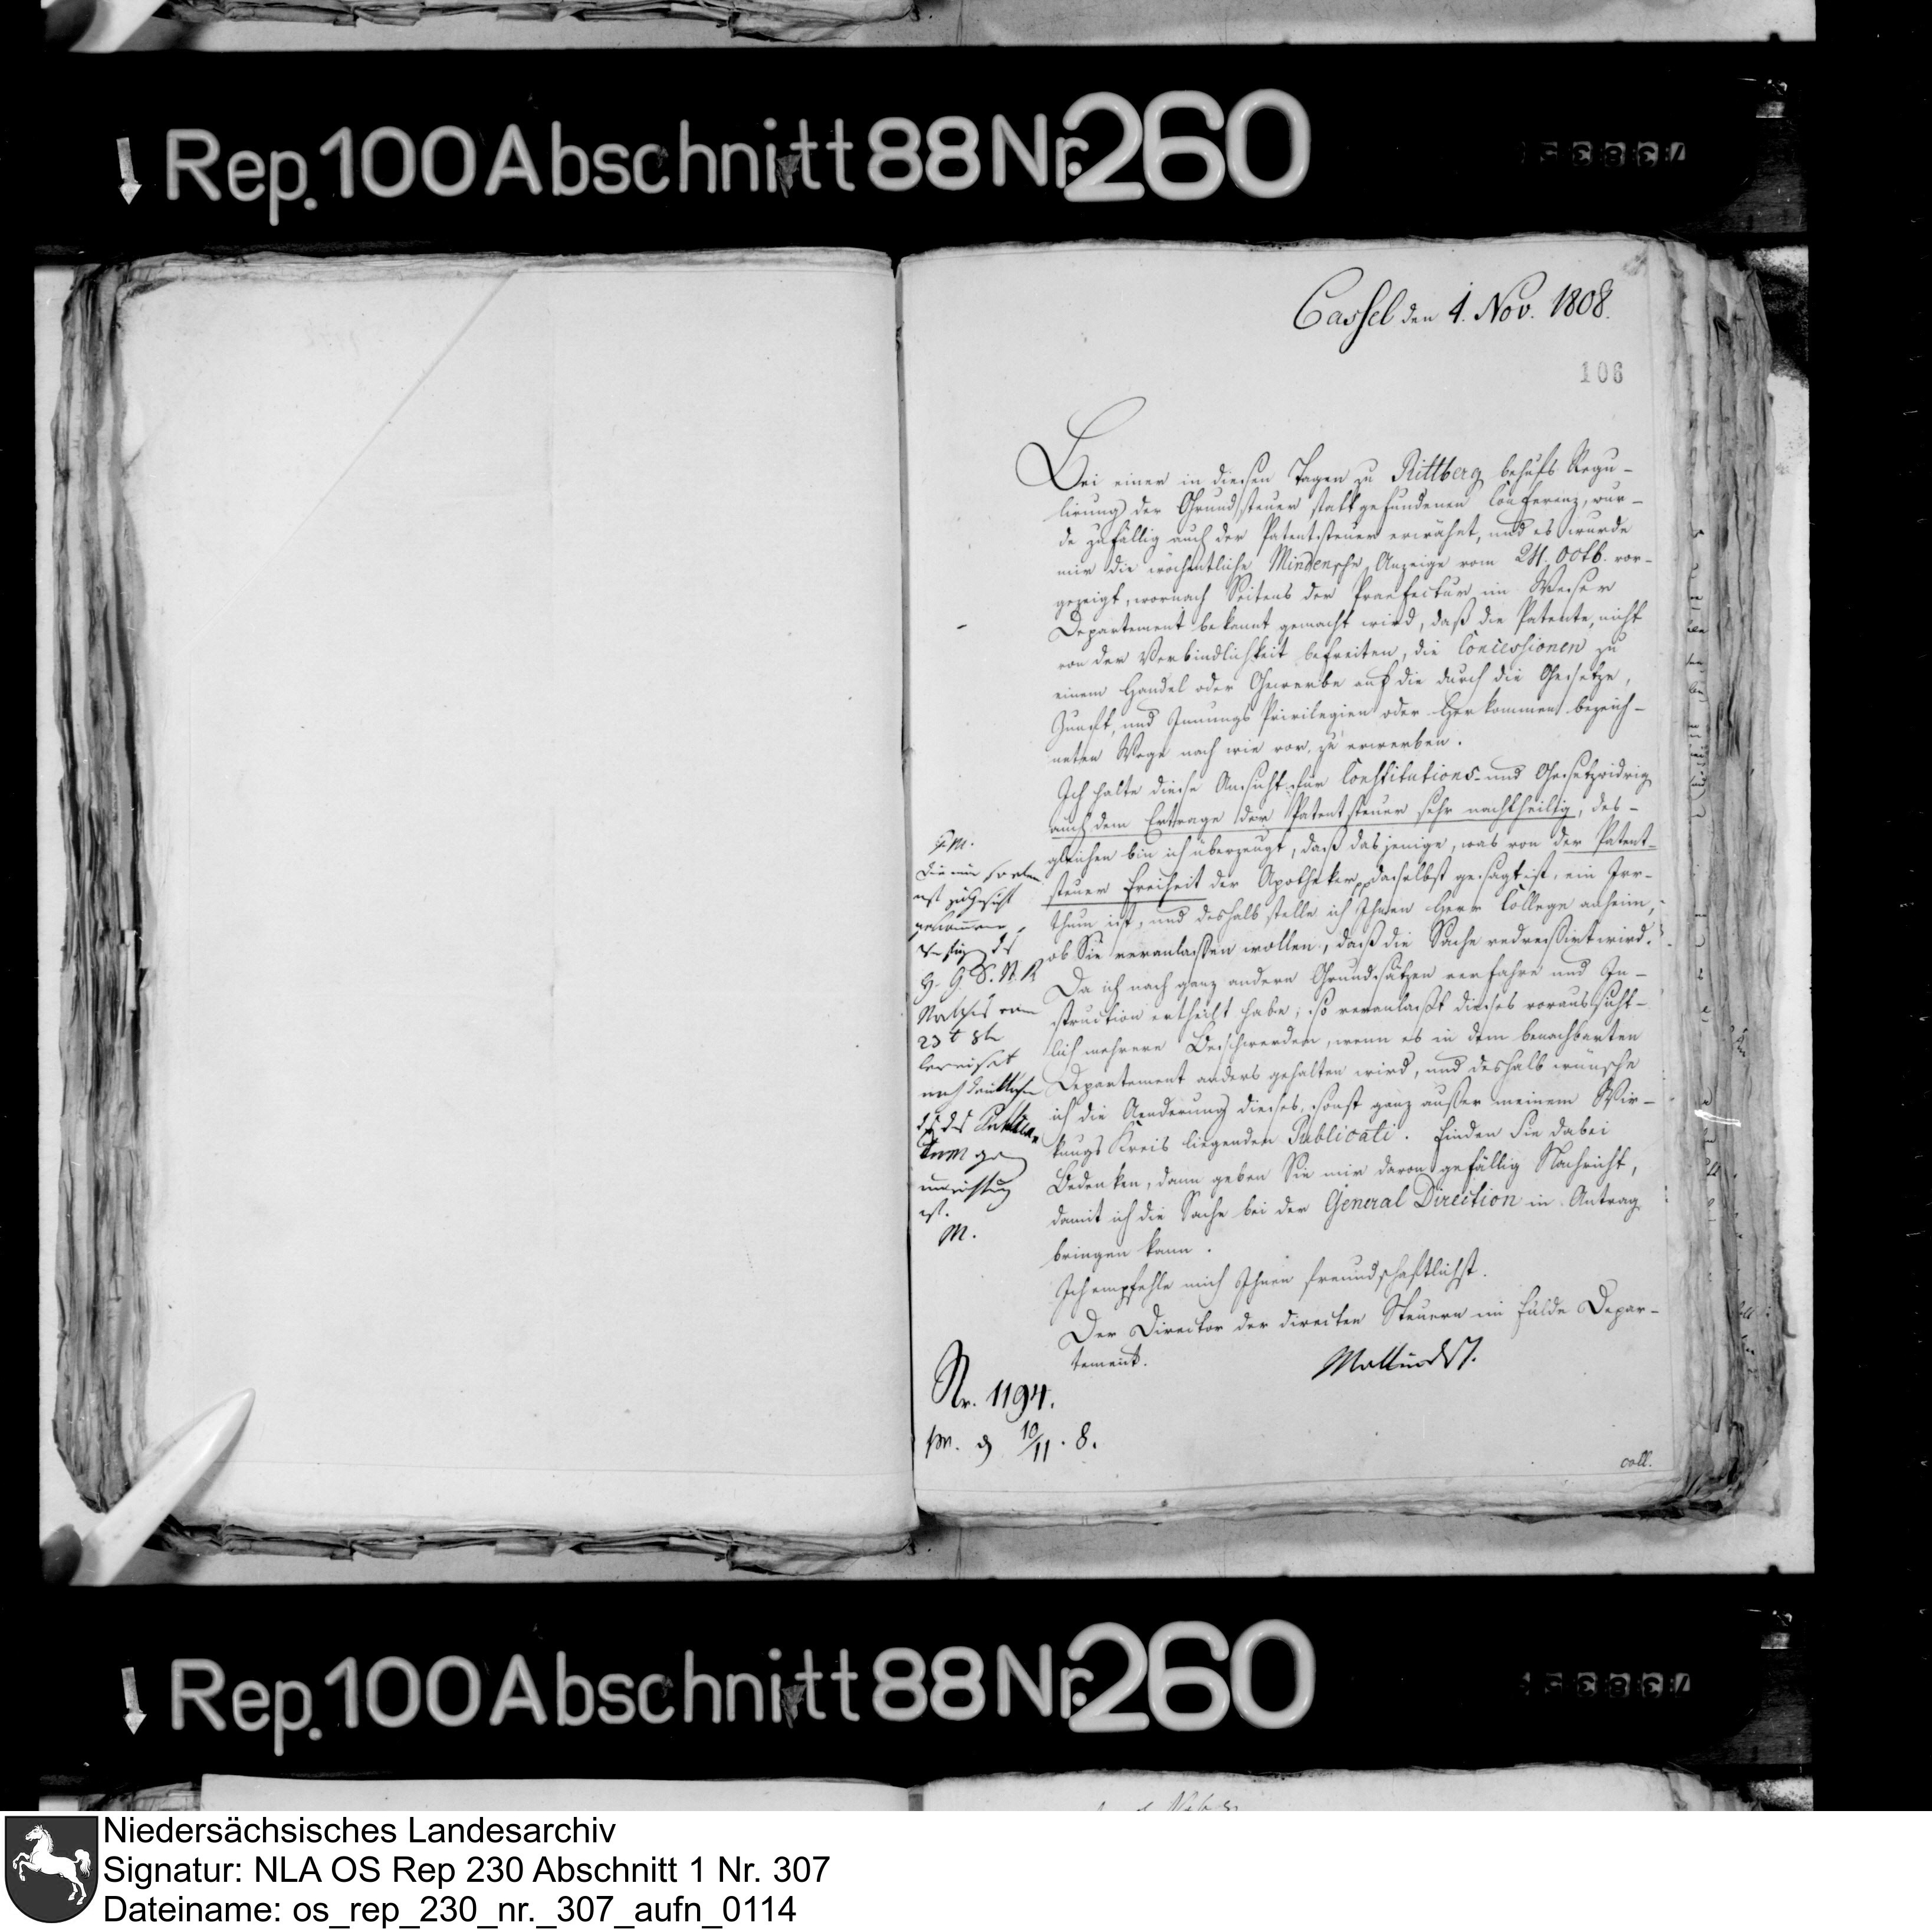 Rep. 100 Abschnitt 88 Nr. 260
73835
Cassel den 4. Nov. 1808.
106
Bei einer in diesen Tagen zu Rittberg behufs Regu-
lirung der Grundsteuer stattgefundenen Conferenz, wur-
de zufällig auch der Patentsteuer erwähnt, und es wurde
mir die wöchentliche Mindensche Anzeige vom 24. Octb. vor-
gezeigt, wornach Seitens der Praefectur im Weser
Departement bekannt gemacht wird, daß die Patente, nicht
von der Verbindlichkeit befreiten, die Concessionen zu
einem Handel oder Gewerbe auf die durch die Gesetze,
Zunft, und Innungs Privilegien oder Herkommen bezeich-
neten Wege nach wie vor zu erwerben.
Ich halte diese Ansicht für Constitutions- und Gesetzwidrig
auch dem Ertrage der Patentsteuer sehr nachtheilig, des-
gleichen bin ich überzeugt, daß dasjenige, was von der Patent-
steuer Freiheit der Apotheker daselbst gesagt ist, ein Irr-
thum ist, und deshalb stelle ich Ihnen Herr College anheim,
ob Sie veranlassen wollen, daß die Sache redressirt wird.
Da ich nach ganz andern Grundsätzen verfahre und In-
struction ertheilt habe; so veranlaßt dieses voraussicht-
lich mehrere Beschwerden, wenn es in dem benachbarten
Departement anders gehalten wird, und deshalb wünsche
ich die Aenderung dieses, sonst ganz außer meinem Wir-
kungs Kreis liegenden Publicati. Finden Sie dabei
Bedenken, dann geben Sie mir davon gefällig Nachricht,
damit ich die Sache bei der General Direction in Antrag
bringen kann.
Ich empfehle mich Ihnen freundschaftlichst.
Der Director der directen Steuern im Fulda Depar-
tement.
P.M.
Die mir soeben
erst zu Gesicht
gekommene
H. G. S. R.
Malchus vom
23t
beweiset
noch deutlicher
daß das
ganz
unrichtig
ist.
M.
Nr. 1194.
pr. d 10/11. 8.
coll.
Rep. 100 Abschnitt 88 Nr. 260
73835
Niedersächsisches Landesarchiv
Signatur: NLA OS Rep 230 Abschnitt 1 Nr. 307
Dateiname: os_rep_230_nr._307_aufn_0114